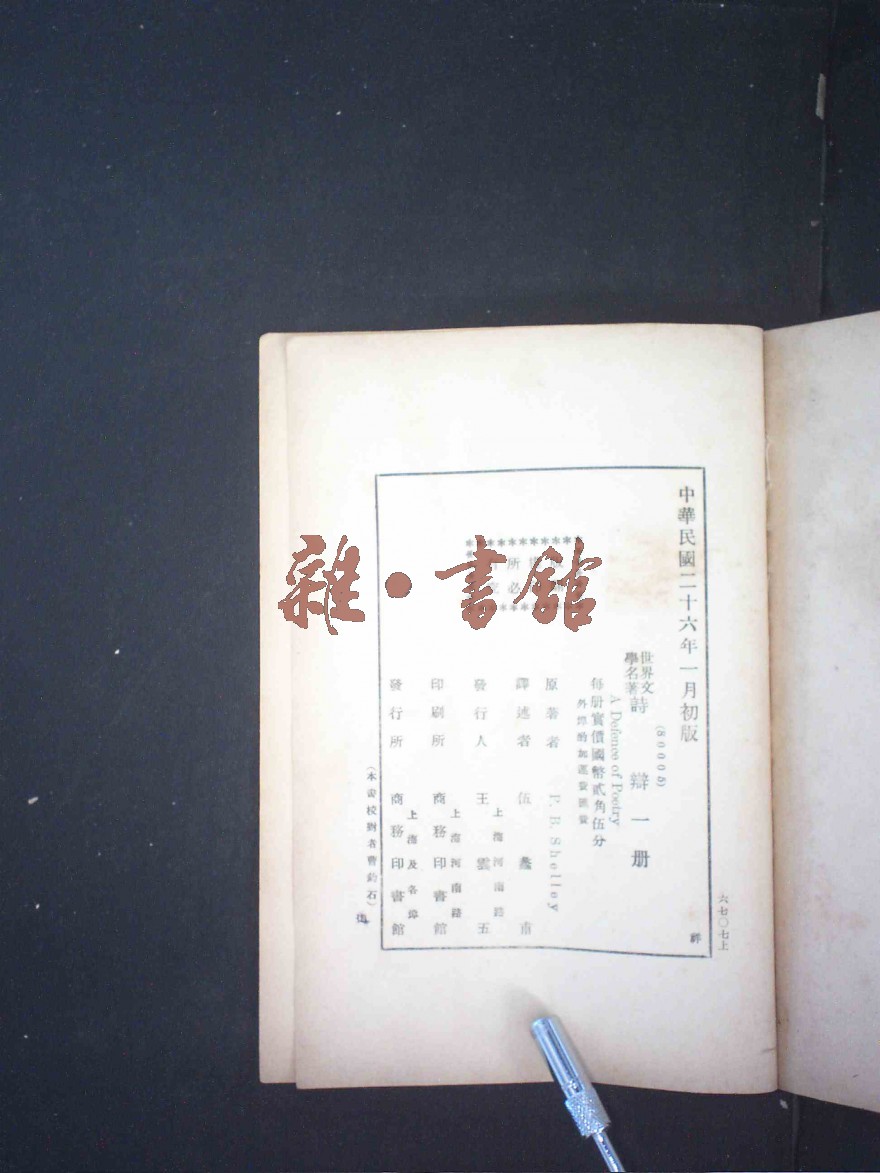 中華民國二十六年一月初版
六七〇七上
世界文
學名著
詩辯一册
(80005)
A Defence of Poetry
每册實價國幣貳角伍分
外埠酌加運費匯費
原著者 P. B. Shelley
譯述者 伍蠡甫
發行人 王雲五
上海河南路
印刷所 商務印書館
上海河南路
發行所 商務印書館
上海及各埠
(本書校對者曹鈞石)
雜・書館